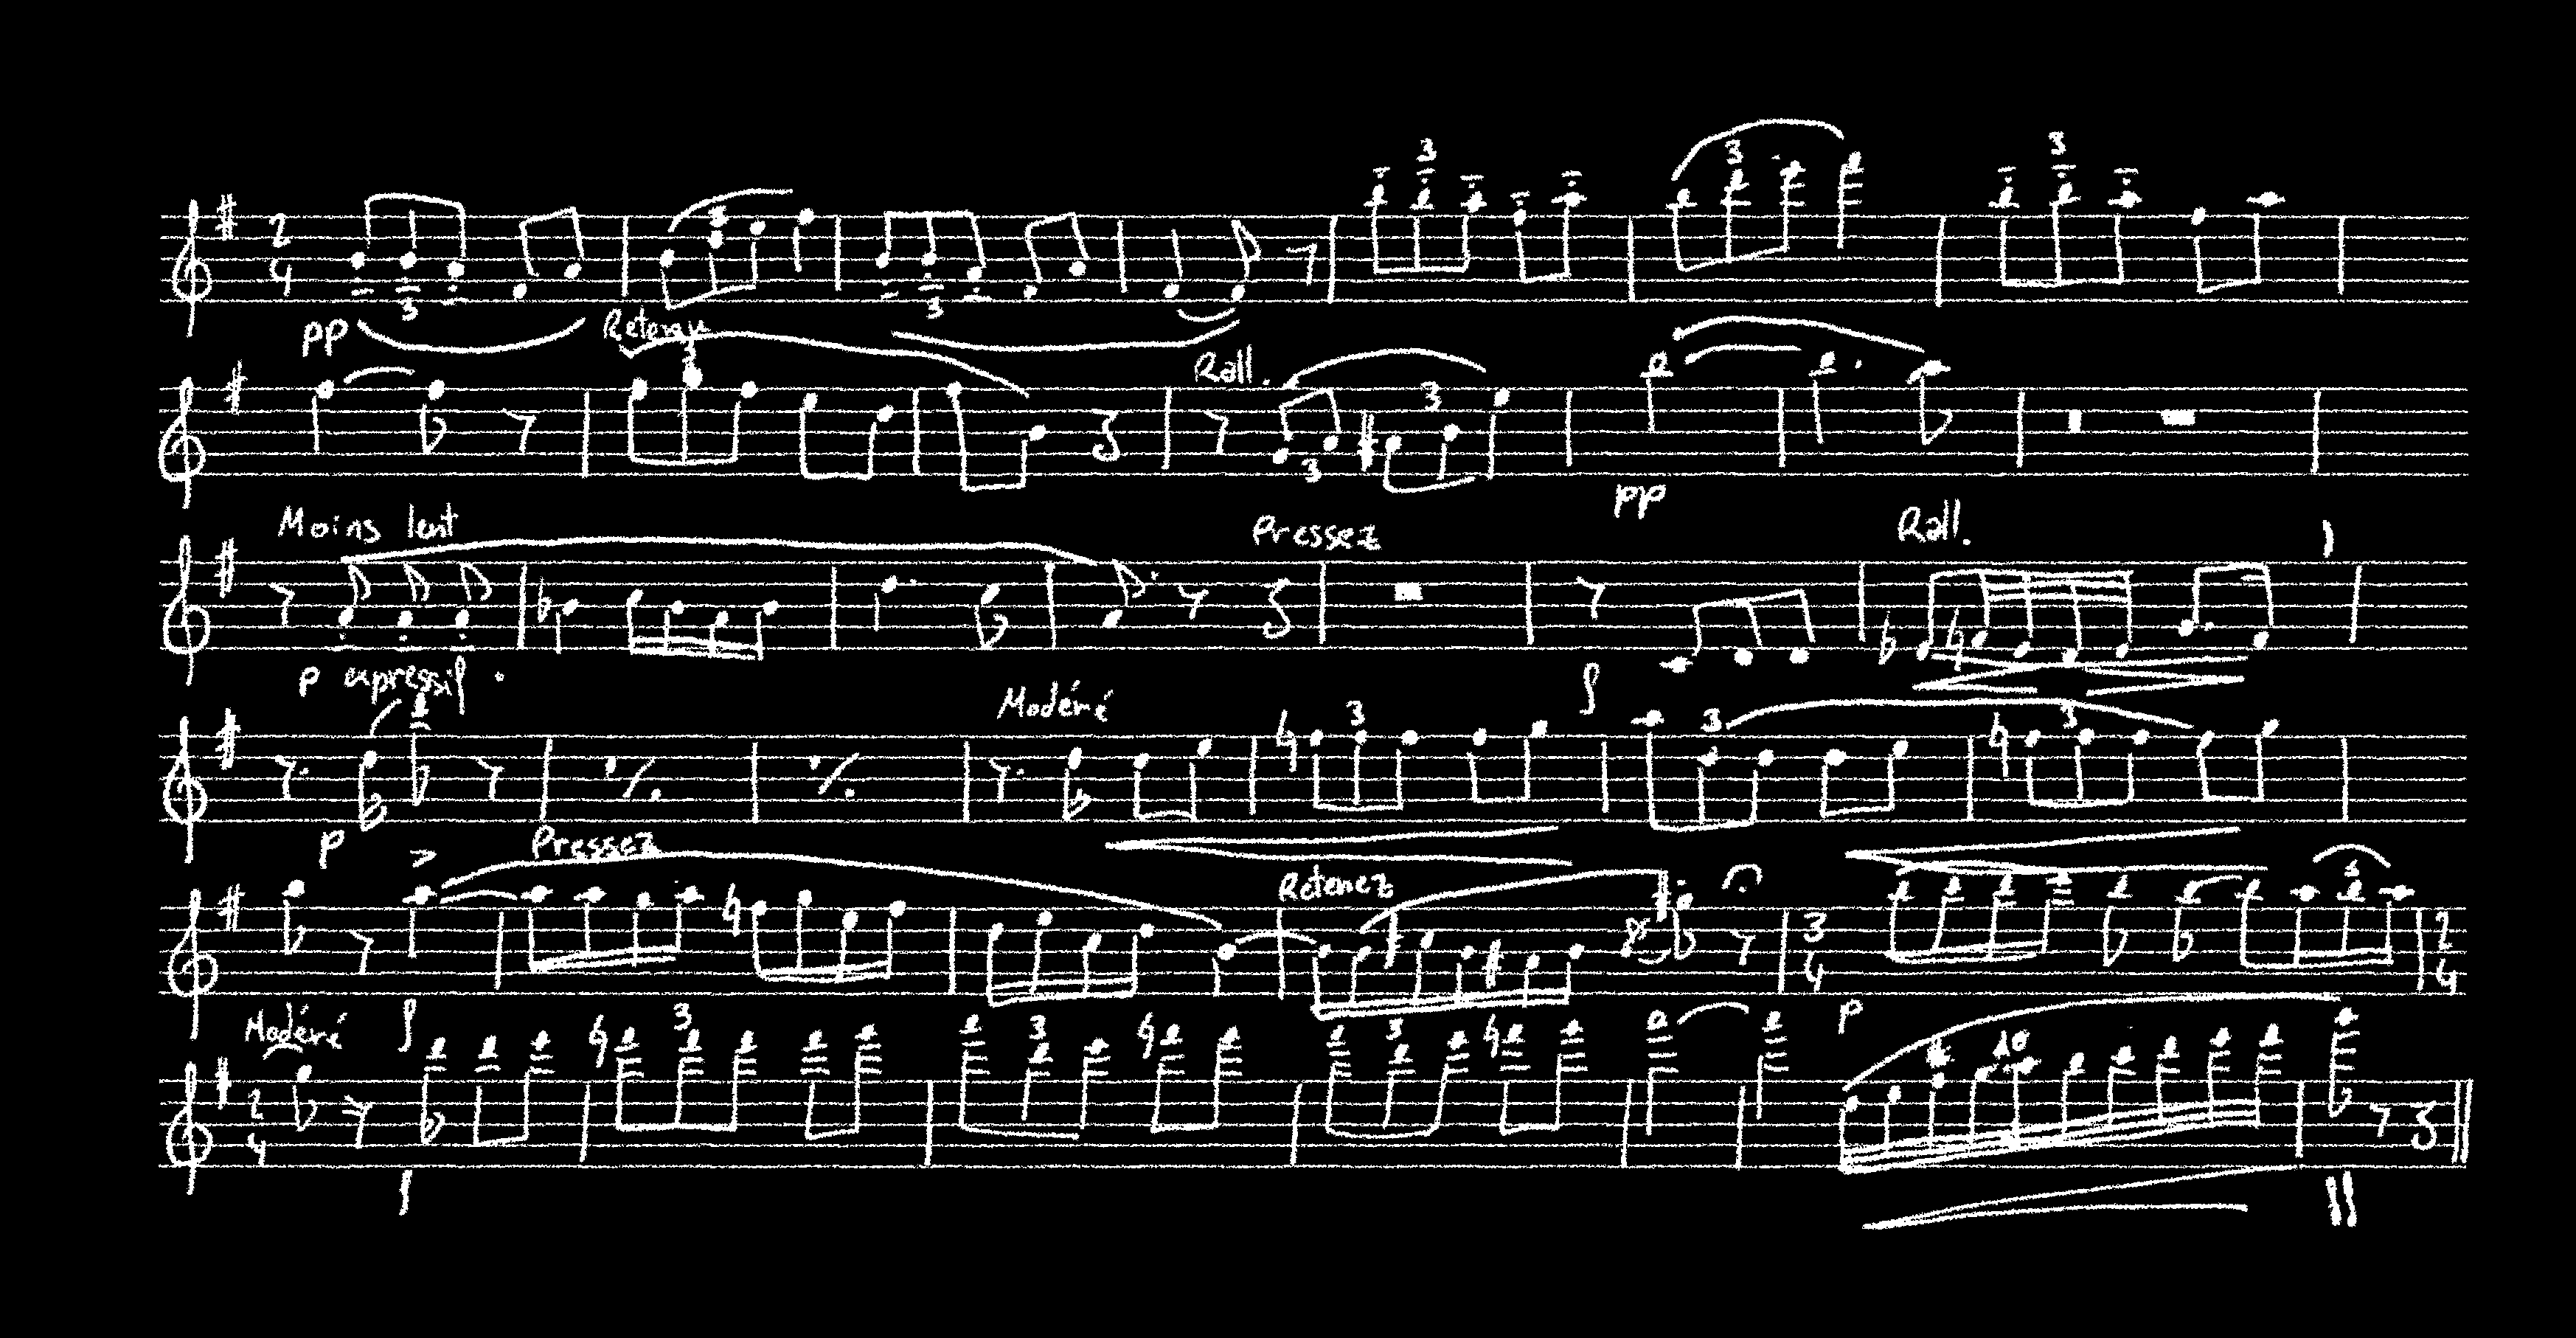 3 3
2 4 3 3 3
pp Retenu
Rall.
3 3 3
pp
Moins lent Pressez Rall.
p expressif. f
Modéré 3 3 3
p Pressez
Retenez
3 4 2 4
Modéré f p
3 3 3 10
2 4
f ff